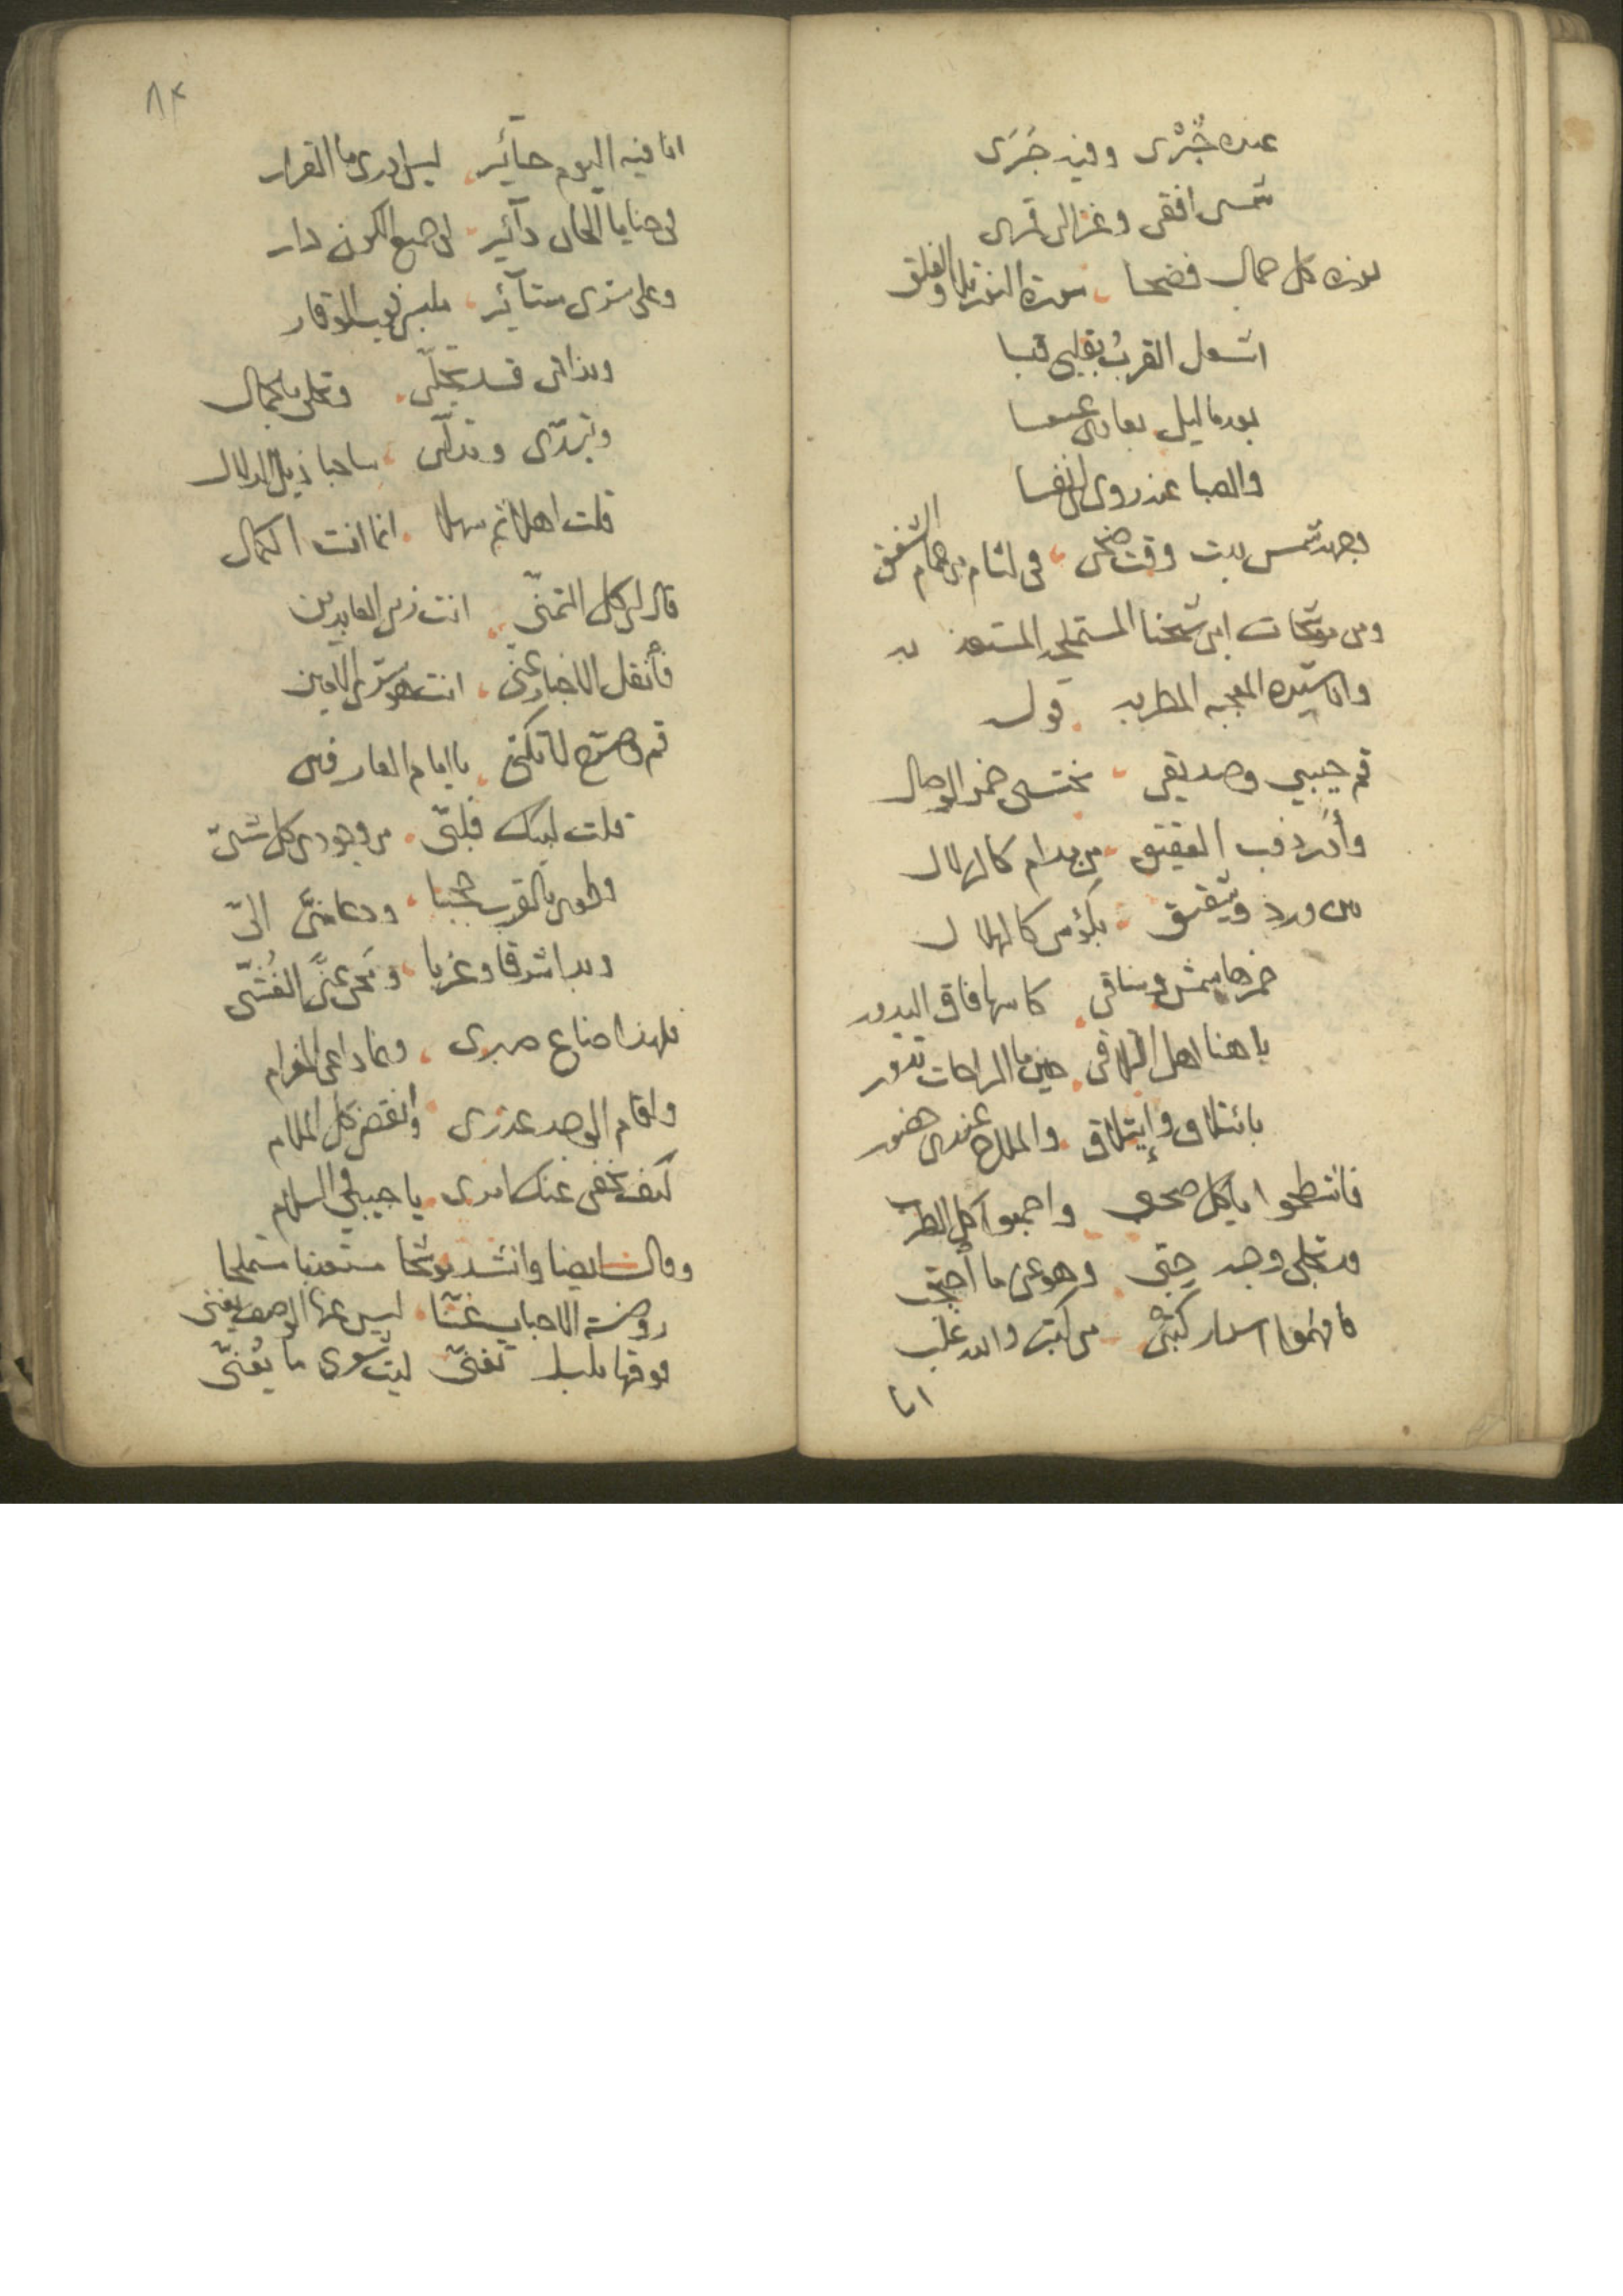 عنده خُبْرى وفيه خَبَرَى
شمس افقى وغزالى قمرى
نوره كل جمال فضحا سورة النور تلا والفلق
اشعل القرب بقلبى قبسا
بعدما ليل بعادى عسعسا
والصبا عنه روى لى نفسا
وجهه شمس بدت وقت ضحى فى لثام من غمام الشفق
ومن موشحات ابن شيخنا المستملحه المستعذبه
واناشيده المعجبه المطربه قوله
قم حبيبي وصديقي نحتسى خمر الوصال
وأدر ذوب العقيق من مدام كالزلال
من ورد وشقيق بكؤس كالهلال
خمرها شمس وساقى كاسها فاق البدور
يا هنا اهل التلاقى حين ما الراحات تدور
بائتلاف وإيتلاق والملاح عندى حضور
فاشطحوا يا كل صحبى واجمعوا كل الطرب
قد تجلى وجه حِبّى وهو عنى ما احتجب
فافهموا اسرار كتبى من كتب والله غلب
انا
٨٣
انا فيه اليوم حآئير ليس ادرى ما القرار
فى حنايا الحان دآئير لى جميع الكون دار
وعلى سترى ستآئير ملبسى ثوب الوقار
وبذاتى قد تجلّى وتحلى بالجمال
وتبدّى وتدلّى ساحبا ذيل الدلال
قلت اهلا ثم سهلا انما انت الكمال
قال لى كل التمنّى انت زين العابدين
فأنقل الاخبار عنّى انت هو سترى الامين
قم وصرّح لا تكنّى يا امام العارفين
قلت لبيك فلبّى من وجودى كل شىّ
وطوى بالقرب حجبا ودعا منّى الىّ
وبدا شرقا وغربا ومحى عنّى الغُشَىّ
فلهذا ضاع صبرى ونما داعى الغرام
واقام الوجد عذرى وأنقضى كل الملام
كيف يخفى عنك امرى يا حبيبى والسلام
وقال ايضا وانشد موشحا مستعذبا مستملحا
روضة الاحباب غنّا ليس عنها الوصف يغنى
فوقها بلبل تغنّى ليت شعرى ما يُغنّى